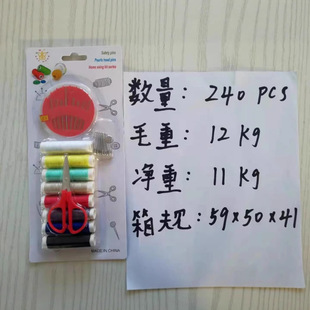 Safety pins
Plastic head pins
MADE IN CHINA
数量: 240 PCS
毛重: 12 Kg
净重: 11 Kg
箱规: 59×50×41